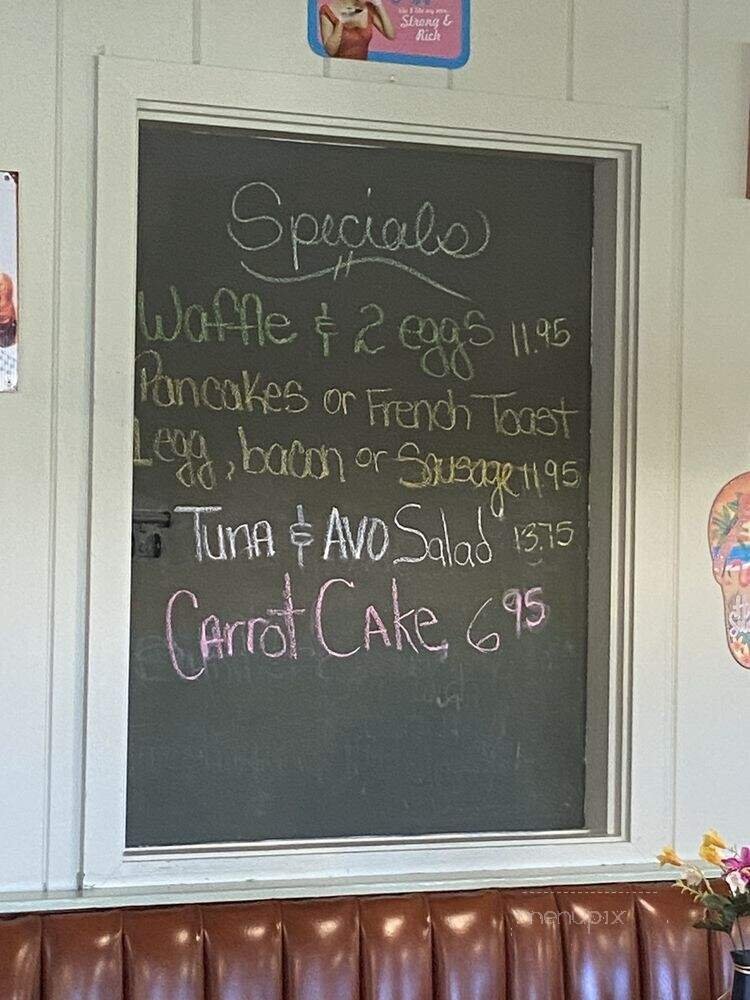 Strong &
Rich
Specials
Waffle & 2 eggs 11.95
Pancakes or French Toast
1 egg, bacon or Sausage 11.95
Tuna & Avo Salad 13.75
Carrot Cake 6.95
menupix